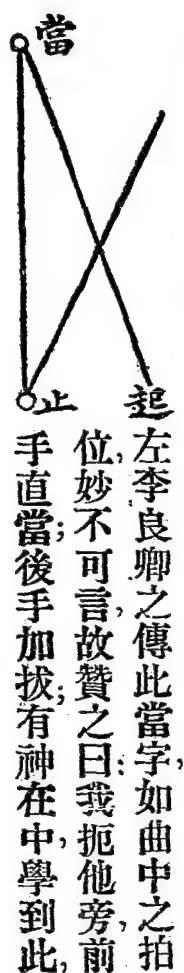 當
止
起
左李良卿之傳此當字，如曲中之拍
位，妙不可言，故贊之曰：我扼他旁，前
手直當；後手加拔；有神在中，學到此，